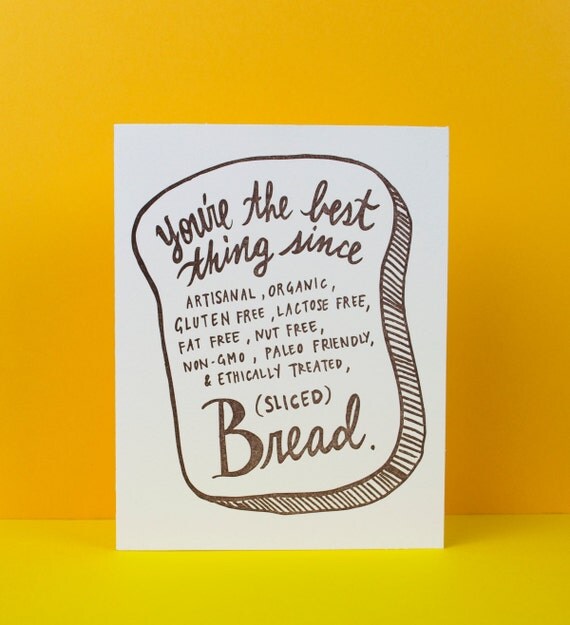 You're the best
thing since
ARTISANAL, ORGANIC,
GLUTEN FREE, LACTOSE FREE,
FAT FREE, NUT FREE,
NON-GMO, PALEO FRIENDLY,
& ETHICALLY TREATED,
(SLICED)
Bread.